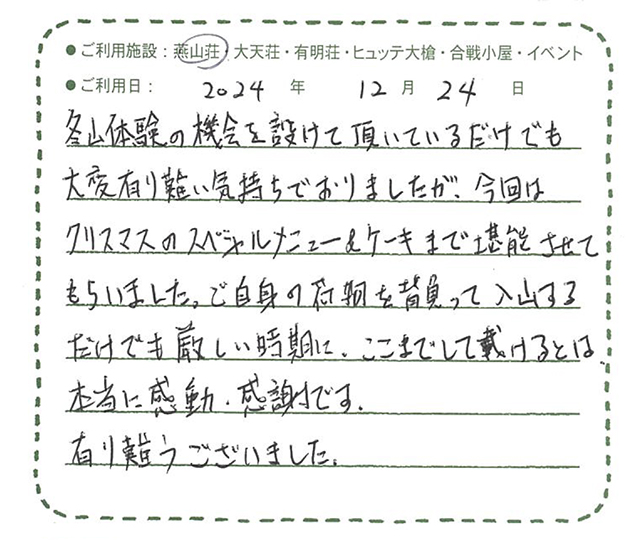 ● ご利用施設：燕山荘・大天荘・有明荘・ヒュッテ大槍・合戦小屋・イベント
● ご利用日： 2024 年 12 月 24 日
冬山体験の機会を設けて頂いているだけでも
大変有り難い気持ちでおりましたが、今回は
クリスマスのスペシャルメニュー&ケーキまで堪能させて
もらいました。ご自身の荷物を背負って入山する
だけでも厳しい時期に、ここまでして戴けるとは、
本当に感動・感謝です。
有り難うございました。